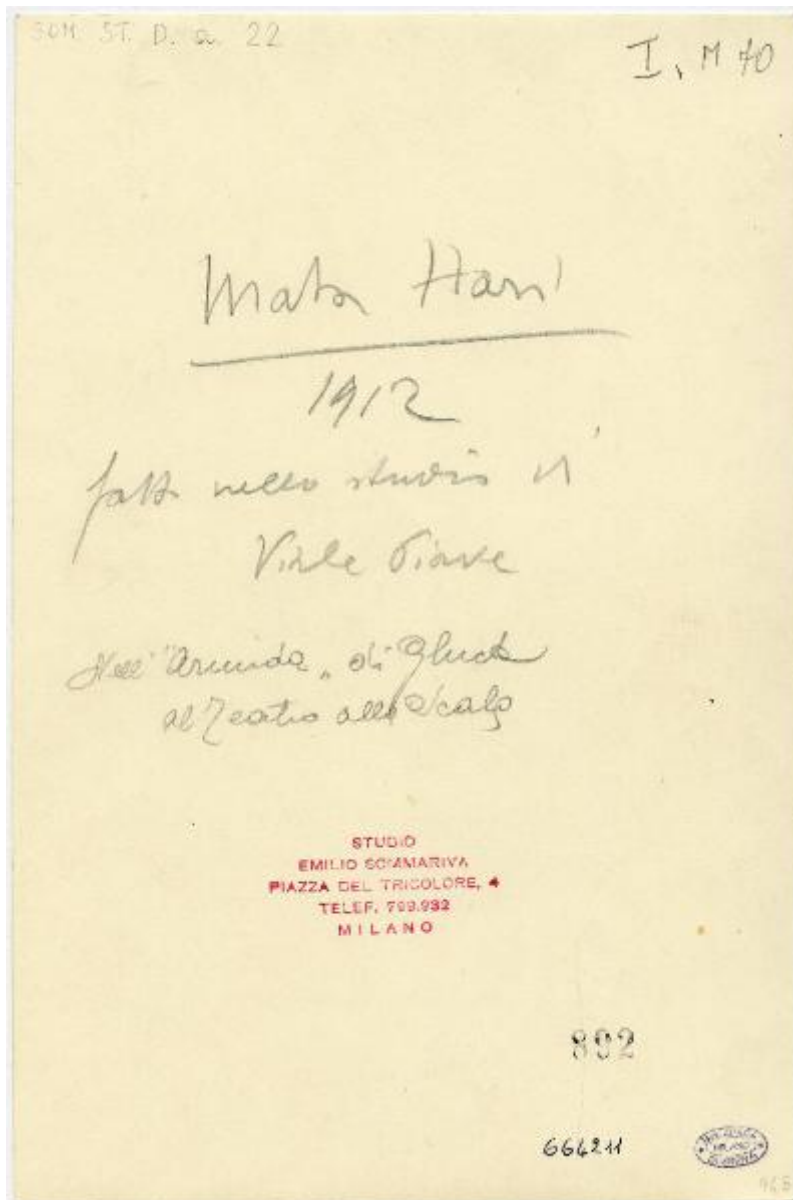 SOM. ST. D. a. 22
I, M 70
Mata Hari
1912
fatta nello studio di
Viale Piave
Nell' "Armida" di Gluck
al Teatro alla Scala
STUDIO
EMILIO SOMMARIVA
PIAZZA DEL TRICOLORE, 4
TELEF. 799.932
MILANO
892
664211